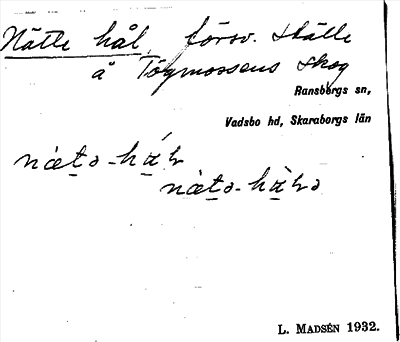 Nätle hål, försv. ställe
å Tögmossens skog
Ransbergs sn,
Vadsbo hd, Skaraborgs län
L. MADSÉN 1932.